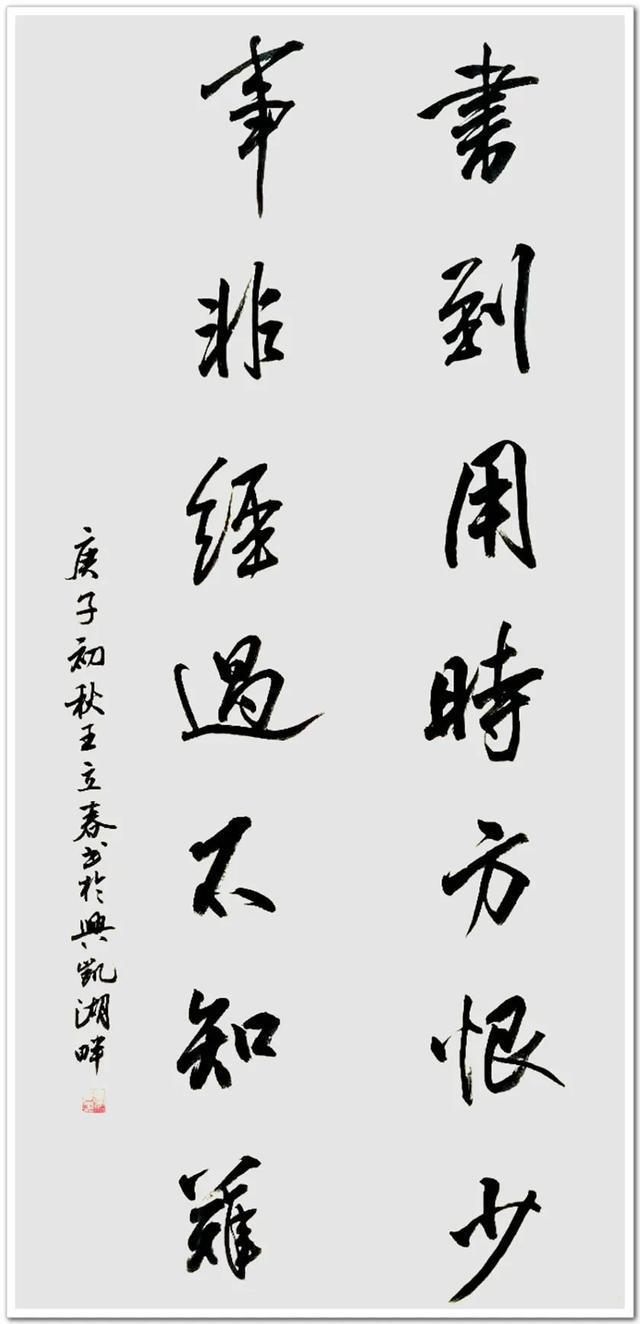 書到用時方恨少
事非經過不知難
庚子初秋王立春书於興凱湖畔